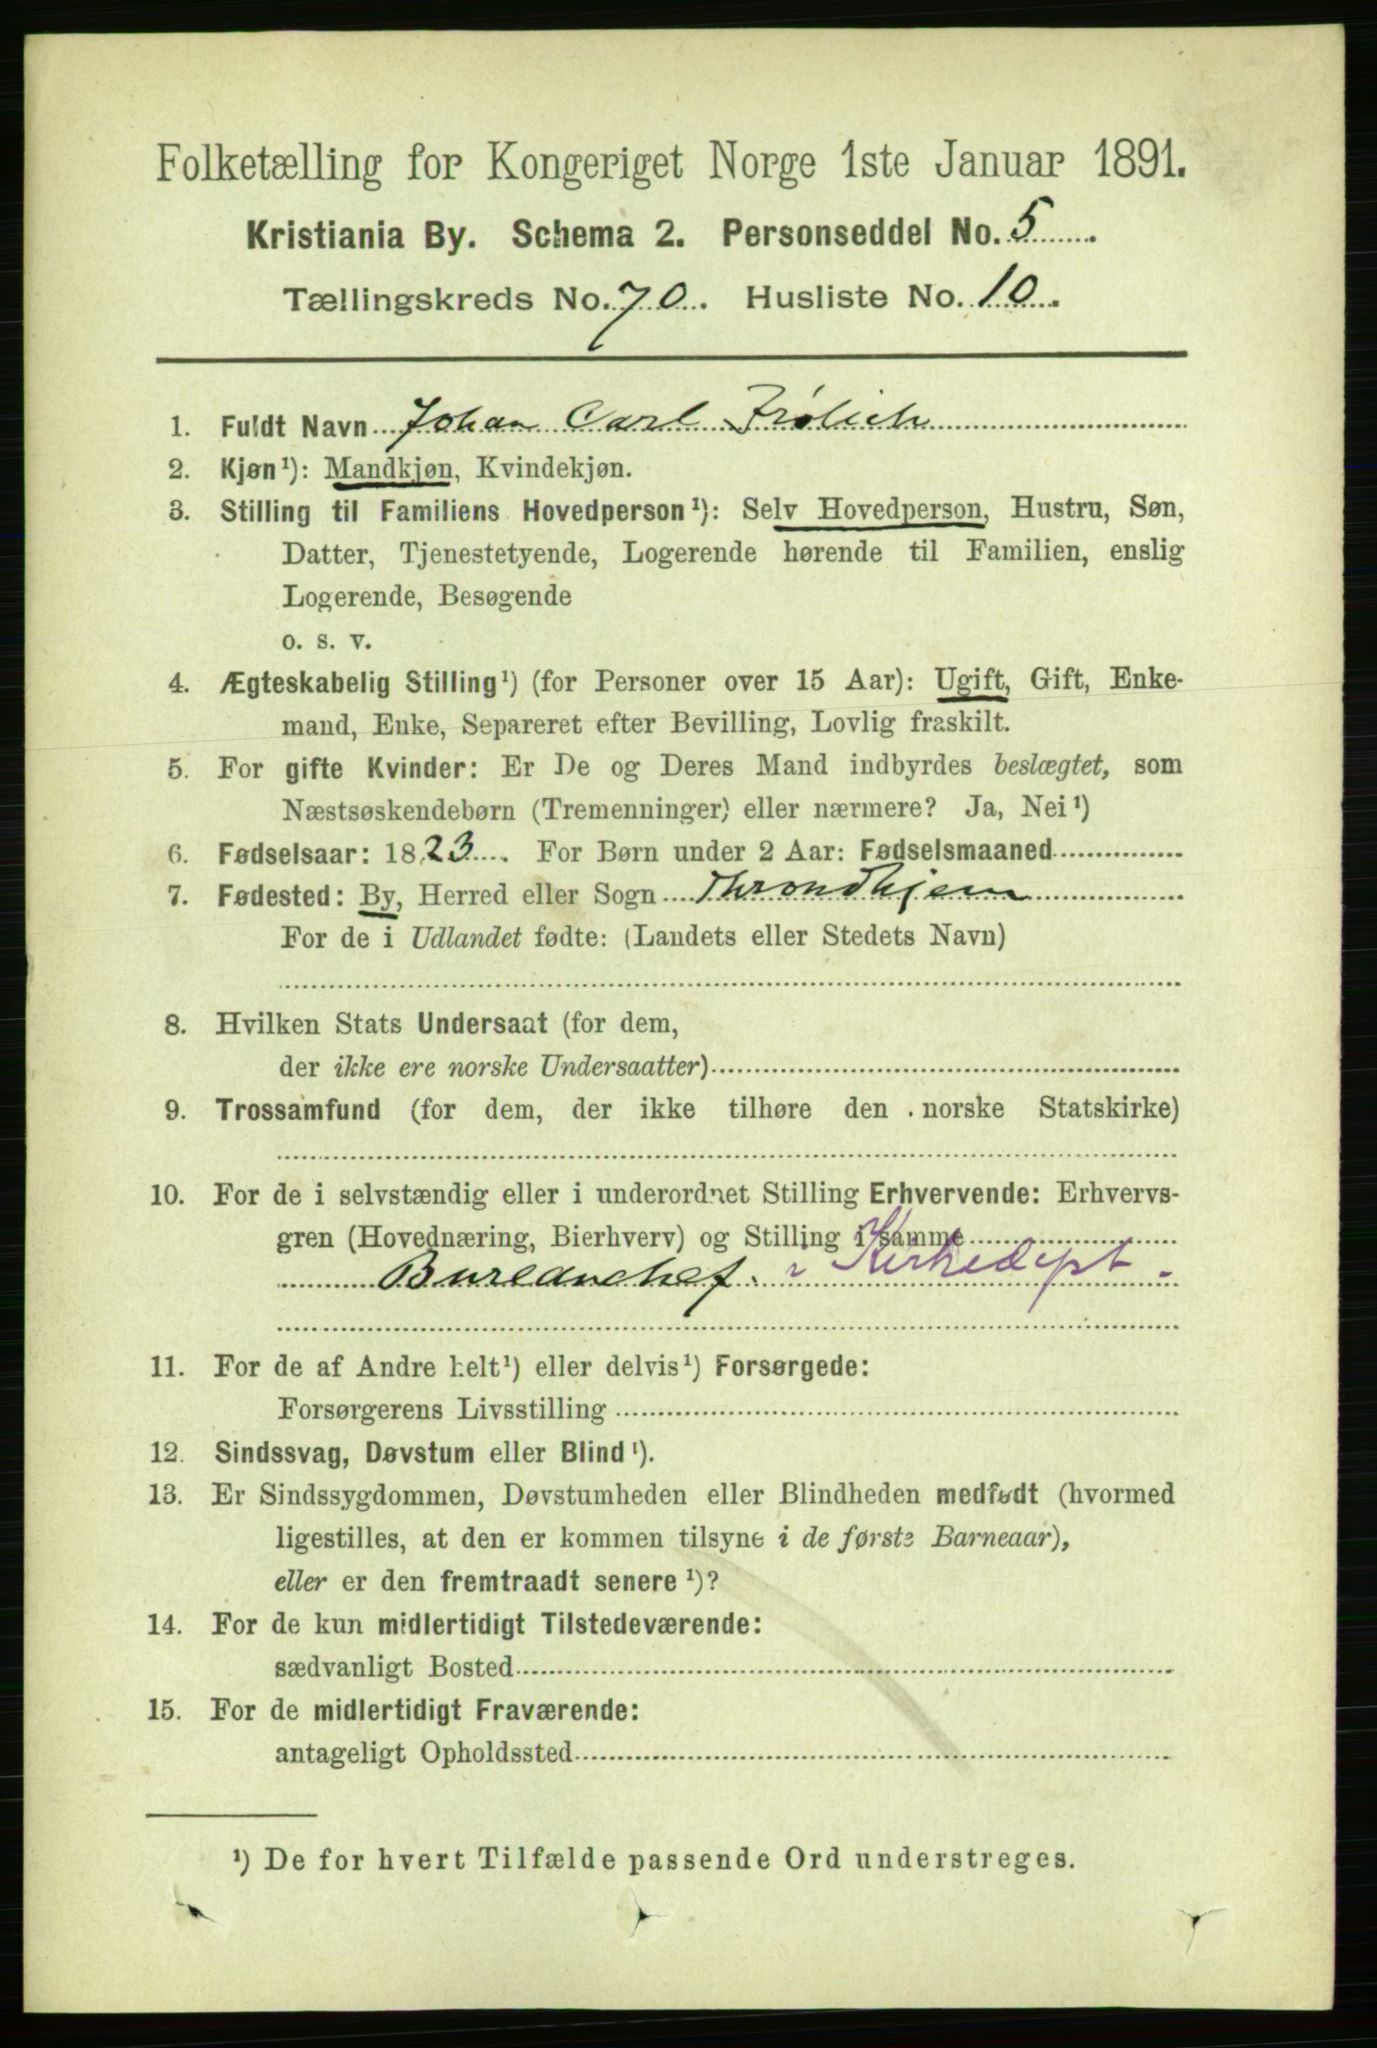 Folketælling for Kongeriget Norge 1ste Januar 1891.
Kristiania By. Schema 2. Personseddel No. 5
Tællingskreds No. 70. Husliste No. 10.
1. Fuldt Navn Johan Carl Frölich
2. Kjøn¹): Mandkjøn, Kvindekjøn.
3. Stilling til Familiens Hovedperson¹): Selv Hovedperson, Hustru, Søn,
Datter, Tjenestetyende, Logerende hørende til Familien, enslig
Logerende, Besøgende
o. s. v.
4. Ægteskabelig Stilling¹) (for Personer over 15 Aar): Ugift, Gift, Enke-
mand, Enke, Separeret efter Bevilling, Lovlig fraskilt.
5. For gifte Kvinder: Er De og Deres Mand indbyrdes beslægtet, som
Næstsøskendebørn (Tremenninger) eller nærmere? Ja, Nei¹)
6. Fødselsaar: 1823. For Børn under 2 Aar: Fødselsmaaned
7. Fødested: By, Herred eller Sogn Throndhjem
For de i Udlandet fødte: (Landets eller Stedets Navn)
8. Hvilken Stats Undersaat (for dem,
der ikke ere norske Undersaatter)
9. Trossamfund (for dem, der ikke tilhøre den norske Statskirke)
10. For de i selvstændig eller i underordnet Stilling Erhvervende: Erhvervs-
gren (Hovednæring, Bierhverv) og Stilling i samme
Bureauchef. i Kirkedept.
11. For de af Andre helt¹) eller delvis¹) Forsørgede:
Forsørgerens Livsstilling
12. Sindssvag, Døvstum eller Blind¹).
13. Er Sindssygdommen, Døvstumheden eller Blindheden medfødt (hvormed
ligestilles, at den er kommen tilsyne i de første Barneaar),
eller er den fremtraadt senere¹)?
14. For de kun midlertidigt Tilstedeværende:
sædvanligt Bosted
15. For de midlertidigt Fraværende:
antageligt Opholdssted
¹) De for hvert Tilfælde passende Ord understreges.